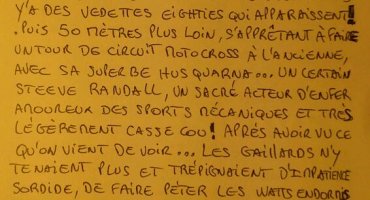 Y'A DES VEDETTES EIGHTIES QUI APPARAISSENT!
PUIS 50 MÈTRES PLUS LOIN, S'APPRÊTANT À FAIRE
UN TOUR DE CIRCUIT MOTOCROSS À L'ANCIENNE,
AVEC SA SUPERBE HUSQUARNA... UN CERTAIN
STEEVE RANDALL, UN SACRÉ ACTEUR D'ENFER
AMOUREUX DES SPORTS MÉCANIQUES ET TRÈS
LÉGÈREMENT CASSE COU! APRÈS AVOIR VU CE
QU'ON VIENT DE VOIR... LES GAILLARDS N'Y
TENAIENT PLUS ET TRÉPIGNAIENT D'IMPATIENCE
SORDIDE, DE FAIRE PÉTER LES WATTS ENDORMIS